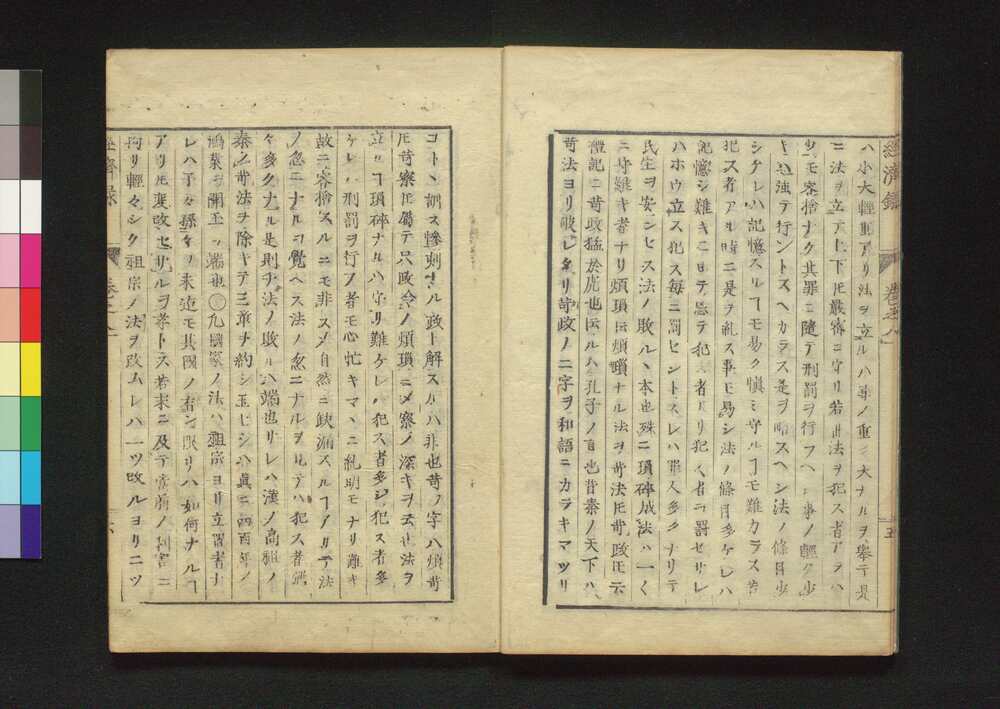 經濟録
卷之八
五
ハ小大輕重アリ法ヲ立ルハ事ノ重ク大ナルヲ擧テ是
ニ法ヲ立テ上下ヒ最審ニ守リ若此法ヲ犯ス者アラハ
少モ容捨ナク其罪ニ隨テ刑罰ヲ行フヘシ事ノ輕ク少
強テ行ントスヘカラス是ヲ略スヘシ法ノ條目少
シケレハ記憶スルヿモ易ク愼ミ守ルヿモ難カラス若
犯ス者アル時ニ是ヲ糺ス事モ易シ法ノ條目多ケレハ
記憶シ難キニヨテ忘テ犯ス者ヒリ犯ス者コ罰セサレ
ハホウ立ス犯ス毎ニ罰セントスレハ罪人多クナリテ
民生ヲ安ンセス法ノ敗ルヽ本也殊ニ瑣碎成法ハ一々
ニ守難キ者ナリ煩瑣ヒ煩瓆ナル法ヲ苛法ヒ苛政ヒ云
禮記ニ苛政猛於虎也ト云ルハ孔子ノ言也昔秦ノ天下ハ
苛法ヨリ破レタリ苛政ノ二字ヲ和語ニカラキマツリ
コトヽ訓ス慘刻ナル政ト解スルハ非也苛ノ字ハ煩苛
ヒ苛察ヒ屬テ只政令ノ煩瑣ニメ察ノ深キヲ云也法ヲ
立ルヿ瑣碎ナルハ守リ難ケレハ犯ス者多シ犯ス者多
ケレハ刑罰ヲ行フ者モ心忙キマヽニ糺明モナリ難キ
故ニ容捨スルニモ非スメ自然ニ缺漏スルヿアリテ法
ノ忽ニナルヿ覺ヘス法ノ忽ニナルヲ見テハ犯ス者彌
々多クナル是則チ法ノ敗ルヽ端也サレハ漢ノ高祖ノ
秦ノ苛法ヲ除キテ三章ヲ約シ玉ヒシハ眞ニ四百年ノ
鴻業ヲ開玉フ端也〇凡國家ノ法ハ祖宗ヨリ立置者ナ
レハ子々孫々ノ末迄モ其國ノ有ン限リハ如何ナルヿ
アリヒ變改セサルヲ孝トス若末ニ及テ當前ノ利害ニ
拘リ輕々シク祖宗ノ法ヲ改ムレハ一ツ改ルヨリ二ツ
經濟録
卷之八
六